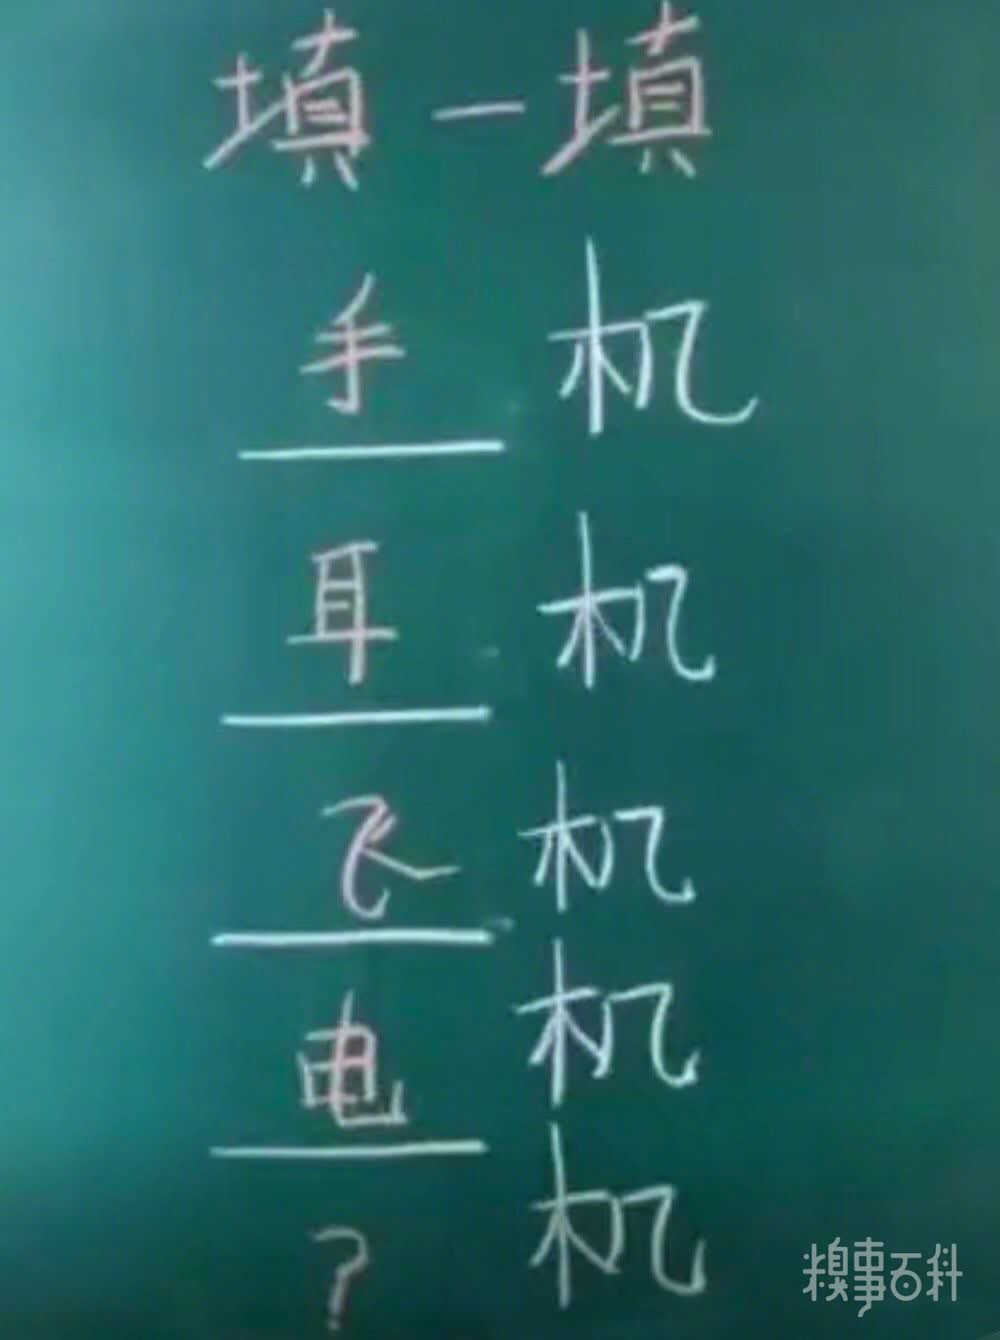 填一填
手机
耳机
飞机
电机
?机
糗事百科